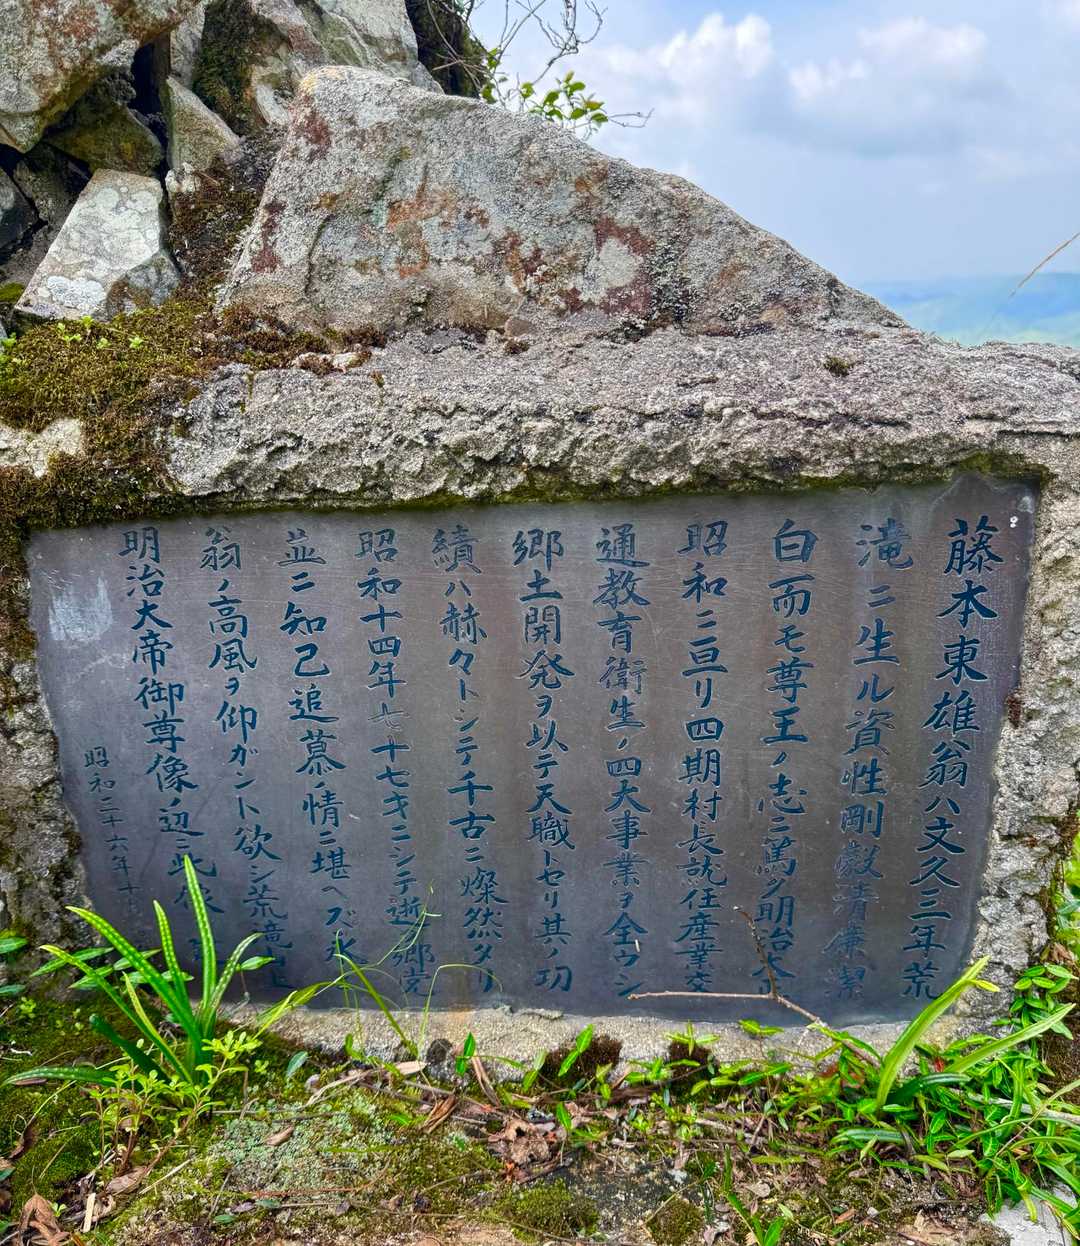 藤本東雄翁ハ文久三年荒
滝ニ生ル資性剛毅清廉潔
白而モ尊王ノ志ニ篤ク明治大正
昭和ニ亘リ四期村長就任産業交
通教育衛生ノ四大事業ヲ全ウシ
郷土開発ヲ以テ天職トセリ其ノ功
績ハ赫々トシテ千古ニ燦然タリ
昭和十四年七十七才ニシテ逝 郷党
並ニ知己追慕ノ情ニ堪ヘズ永
翁ノ高風ヲ仰ガント欲シ荒竜山上
明治大帝御尊像ノ辺ニ此
昭和二十六年十